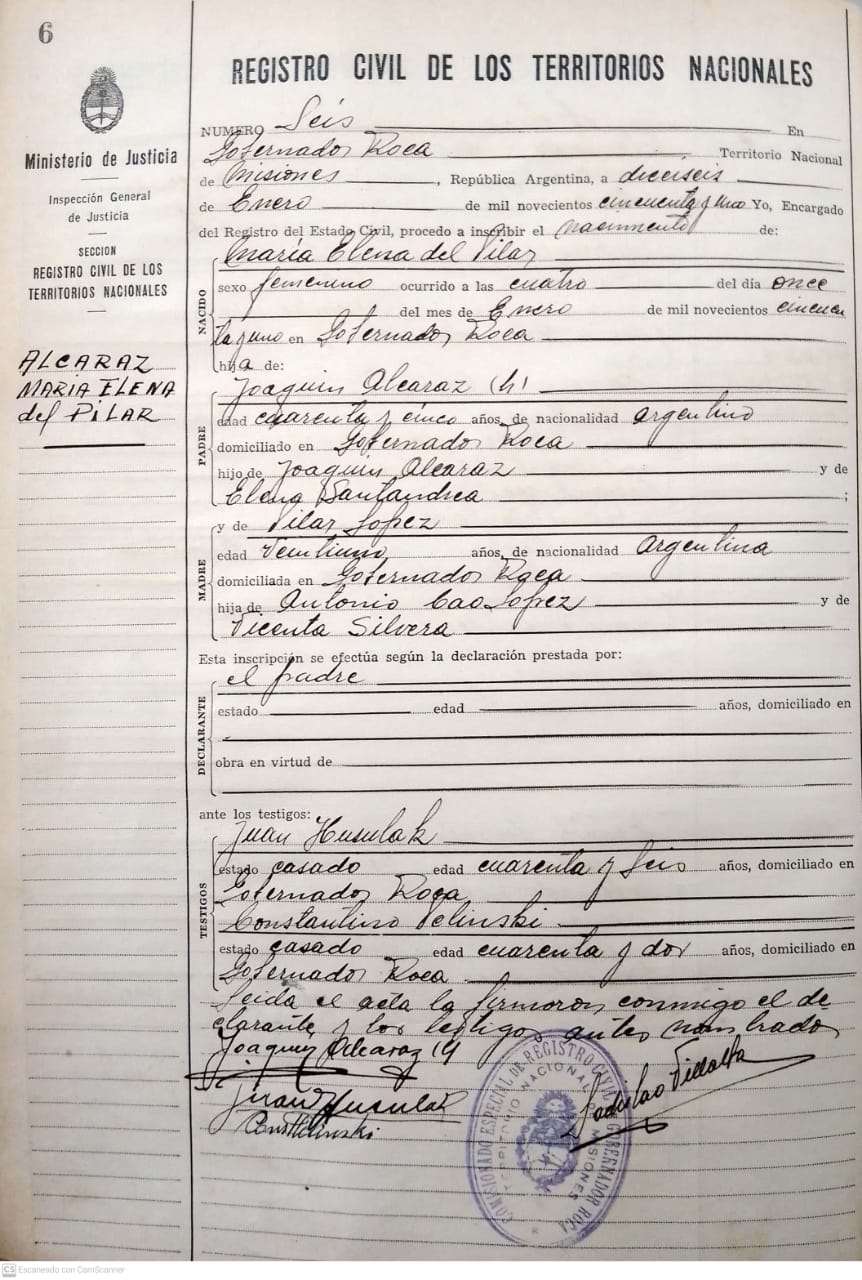 6
REGISTRO CIVIL DE LOS TERRITORIOS NACIONALES
Ministerio de Justicia
Inspección General
de Justicia
SECCION
REGISTRO CIVIL DE LOS
TERRITORIOS NACIONALES
ALCARAZ
MARIA ELENA
del PILAR
NUMERO Seis En
Gobernador Roca Territorio Nacional
de Misiones, República Argentina, a dieciseis
de Enero de mil novecientos cincuenta y uno Yo, Encargado
del Registro del Estado Civil, procedo a inscribir el nacimiento de:
NACIDO
María Elena del Pilar
sexo femenino ocurrido a las cuatro del día once
del mes de Enero de mil novecientos cincuen
ta y uno en Gobernador Roca
hija de:
PADRE
Joaquin Alcaraz (h)
edad cuarenta y cinco años, de nacionalidad argentino
domiciliado en Gobernador Roca
hijo de Joaquin Alcaraz y de
Elena Santandrea ;
MADRE
y de Pilar Lopez
edad Veintiuno años, de nacionalidad Argentina
domiciliada en Gobernador Roca
hija de Antonio Cao Lopez y de
Vicenta Silvera
Esta inscripción se efectúa según la declaración prestada por:
DECLARANTE
el padre
estado edad años, domiciliado en
obra en virtud de
ante los testigos:
TESTIGOS
Juan Husulak
estado casado edad cuarenta y Seis años, domiciliado en
Gobernador Roca
Constantino Zelinski
estado casado edad cuarenta y dos años, domiciliado en
Gobernador Roca
Leida el acta la firmaron conmigo el de
clarante y los testigos antes nombrados
Joaquin Alcaraz (h)
Juan Husulak
Ladislao Villalta
COMISIONADO ESPECIAL DE REGISTRO CIVIL GOBERNADOR ROCA
TERRITORIO NACIONAL MISIONES
CS Escaneado con CamScanner